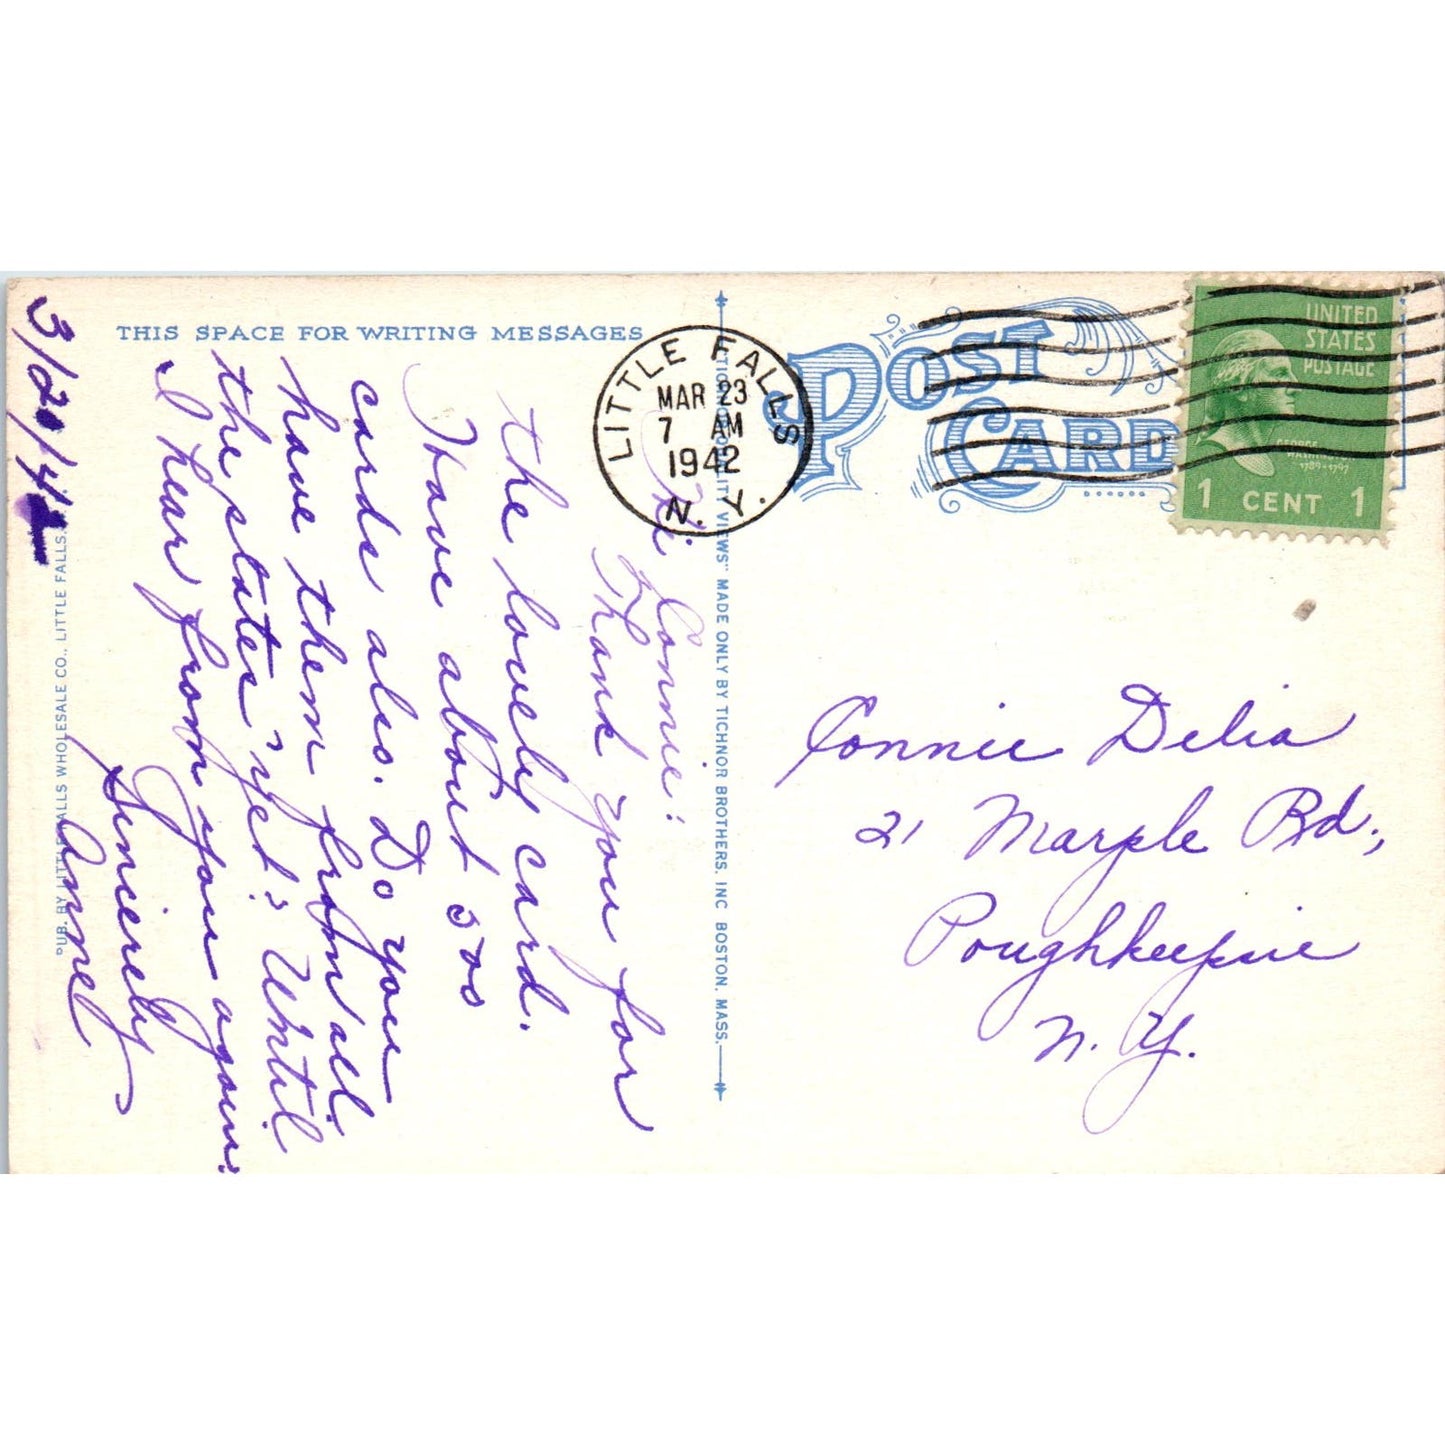 THIS SPACE FOR WRITING MESSAGES
3/20/42
Hi Connie:
Thank you for
the lovely card.
I have about 500
cards also. Do you
have them from all
the states yet? Until
I hear from you again.
Sincerely
PUB. BY LITTLE FALLS WHOLESALE CO., LITTLE FALLS,
VIEWS" MADE ONLY BY TICHNOR BROTHERS, INC BOSTON, MASS.
LITTLE FALLS
MAR 23
7 AM
1942
N. Y.
POST
CARD
UNITED
STATES
POSTAGE
GEORGE
1789-1797
1 CENT 1
Connie Delia
21 Marple Rd.,
Poughkeepsie
N. Y.